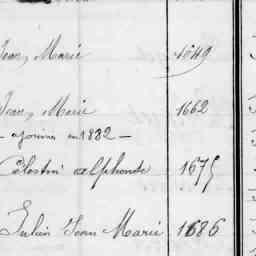 Jean, Marie 1649
Jean, Marie 1662
- ajourné en 1882 -
Célestin Alphonse 1675
Julien Jean Marie 1686